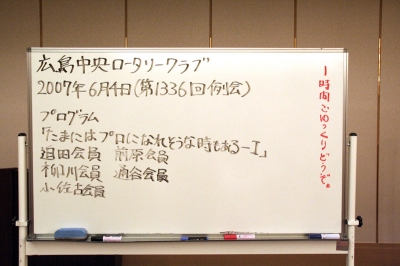 広島中央ロータリークラブ
2007年6月4日(第1336回例会)
プログラム
「たまにはプロになれそうな時もあるーI」
迫田会員 前原会員
柳川会員 適谷会員
小佐古会員
1時間ごゆっくりどうぞ。